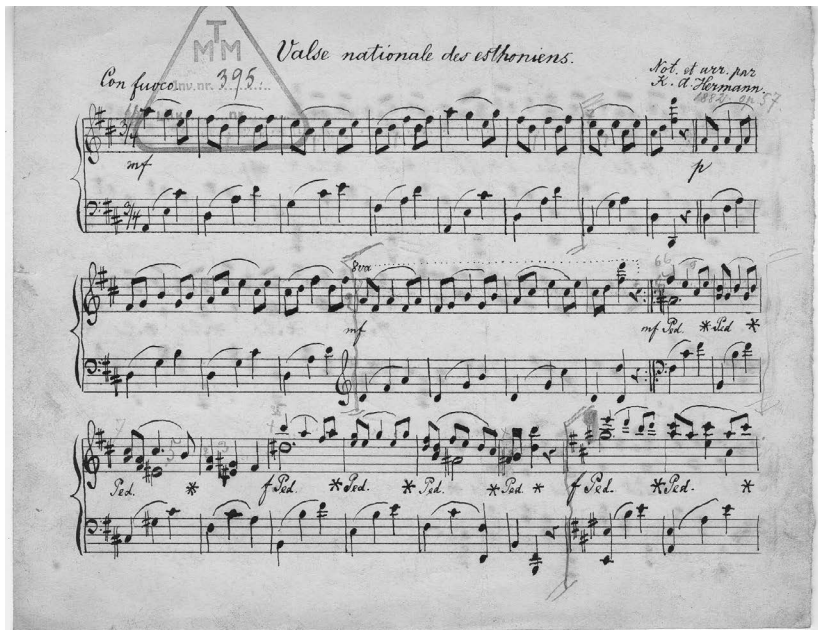 T
MTM
Valse nationale des esthoniens.
Con fuoco.
Inv. nr. 395.
Not. et arr. par
K. A. Hermann.
1882. op. 57
3/4
mf
p
3/4
8va
mf
mf Ped. * Ped. *
Ped. * f Ped. * Ped. * Ped. * Ped. * f Ped. * Ped. *